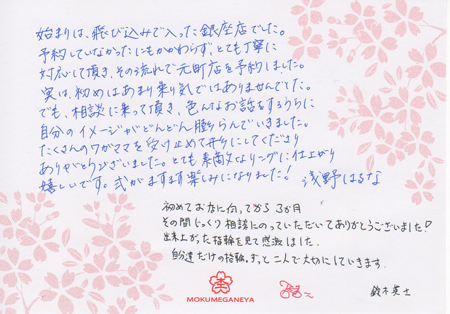 始まりは、飛び込みで入った銀座店でした。
予約していなかったにもかかわらず、とても丁寧に
対応して頂き、その流れで元町店を予約しました。
実は、初めはあまり乗り気ではありませんでした。
でも、相談に乗って頂き、色んなお話をするうちに
自分のイメージがどんどん膨らんでいきました。
たくさんのワガママを受け止めて形にしてくださり
ありがとうございました。とても素敵なリングに仕上がり
嬉しいです。式がますます楽しみになりました！ 浅野はるな
初めてお店に伺ってから3か月
その間じっくり相談にのっていただいてありがとうございました♡
出来上がった指輪を見て感激しました。
自分達だけの指輪。ずっと二人で大切にしていきます。
MOKUMEGANEYA
鈴木英士